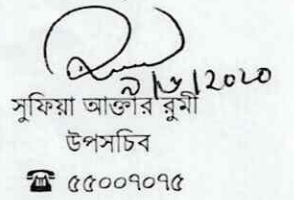 ৯/৬/2020
সুফিয়া আক্তার রুমী
উপসচিব
☎ ৫৫০০৭০৭৫